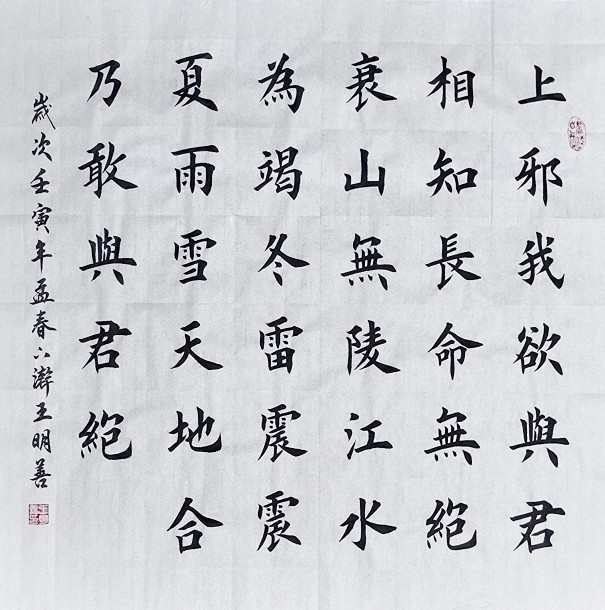 上邪我欲與君
相知長命無絕
衰山無陵江水
為竭冬雷震震
夏雨雪天地合
乃敢與君絕
歲次壬寅年孟春六瀞王明善